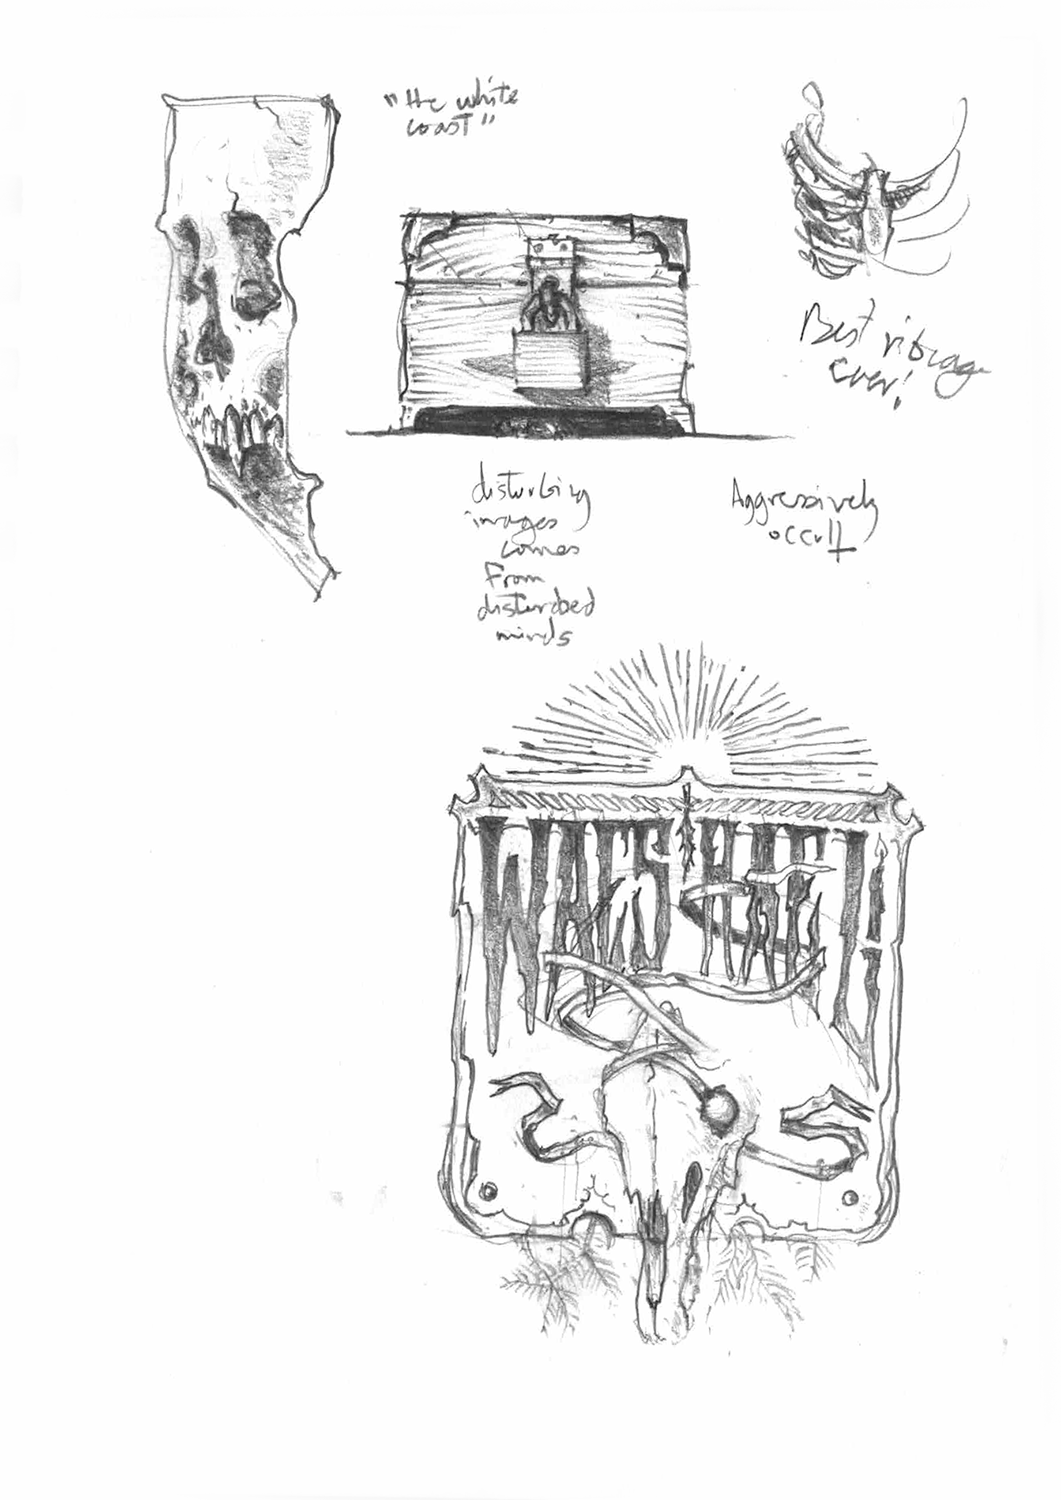 "the white
coast"
Best ribcage
ever!
disturbing
images
comes
From
disturbed
minds
Aggressively
occult